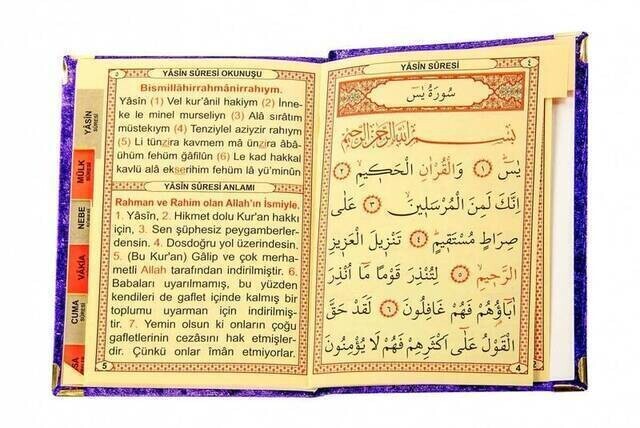 YÂSİN SÛRESİ OKUNUŞU
٥
Bismillâhirrahmânirrahıym.
Yâsîn (1) Vel kur'ânil hakiym (2) İnne-
ke le minel murseliyn (3) Alâ sırâtım
müstekıym (4) Tenziylel aziyzir rahıym
(5) Li tünzira kavmem mâ ünzira âbâ-
ühüm fehüm gâfilûn (6) Le kad hakkal
kavlü alâ ekserihim fehüm lâ yü'minûn
YÂSİN SÛRESİ ANLAMI
Rahman ve Rahim olan Allah'ın İsmiyle.
1. Yâsîn, 2. Hikmet dolu Kur'an hakkı
için, 3. Sen şüphesiz peygamberler-
densin. 4. Dosdoğru yol üzerindesin.
5. (Bu Kur'an) Gâlip ve çok merha-
metli Allah tarafından indirilmiştir. 6.
Babaları uyarılmamış, bu yüzden
kendileri de gaflet içinde kalmış bir
toplumu uyarman için indirilmiş-
tir. 7. Yemin olsun ki onların çoğu
gafletlerinin cezasını hak etmişler-
dir. Çünkü onlar îmân etmiyorlar.
5
YÂSİN SÛRESİ
MÜLK SÛRESİ
NEBE SÛRESİ
VÂKIA SÛRESİ
CUMA SÛRESİ
SA
YÂSİN SÛRESİ
٤
سُورَةُ يٰسٓ
بِسْمِ اللّٰهِ الرَّحْمٰنِ الرَّحِيمِ
يٰسٓ ﴿١﴾ وَالْقُرْاٰنِ الْحَكِيمِ ﴿٢﴾
اِنَّكَ لَمِنَ الْمُرْسَلِينَ ﴿٣﴾ عَلٰى
صِرَاطٍ مُسْتَقِيمٍ ﴿٤﴾ تَنْزِيلَ الْعَزِيزِ
الرَّحِيمِ ﴿٥﴾ لِتُنْذِرَ قَوْمًا مَٓا اُنْذِرَ
اٰبَٓاؤُهُمْ فَهُمْ غَافِلُونَ ﴿٦﴾ لَقَدْ حَقَّ
الْقَوْلُ عَلٰٓى اَكْثَرِهِمْ فَهُمْ لَا يُؤْمِنُونَ
4
2